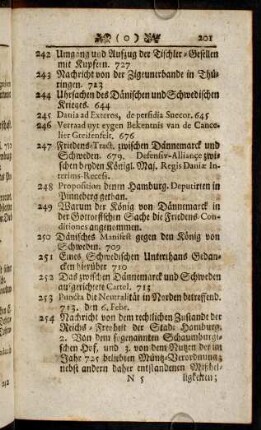 ( o ) 201
242 Umgang und Aufzug der Tischler-Gesellen
mit Kupfern. 727
243 Nachricht von der Zigeunerbande in Thü-
ringen. 713
244 Uhrsachen des Dänischen und Schwedischen
Krieges. 644
245 Dania ad Exteros, de perfidia Suecor. 645
246 Verraad uyt eygen Bekentnis van de Cance-
lier Greiffenfelt, 676
247 Friedens-Tract. zwischen Dännemarck und
Schweden. 679. Defensiv-Alliance zwi-
schen beyden Königl. Maj. Regis Daniæ In-
terims-Recess.
248 Proposition denen Hamburg. Deputirten in
Pinneberg gethan.
249 Warum der König von Dännemarck in
der Gottorfischen Sache die Friedens-Con-
ditiones angenommen.
250 Dänisches Manifest gegen den König von
Schweden. 709
251 Eines Schwedischen Unterthans Gedan-
cken hierüber 710
252 Das zwischen Dännemarck und Schweden
aufgerichtete Cartel. 713
253 Puncta die Neutralität in Norden betreffend.
713. den 6. Febr.
254 Nachricht von dem rechtlichen Zustande der
Reichs-Freyheit der Stadt Hamburg.
2. Von dem sogenannten Schauenburgi-
schen Hof, und 3. von dem Nutzen der im
Jahr 725 beliebten Müntz-Verordnung;
nebst andern daher entstandenen
N 5 ligkeiten;